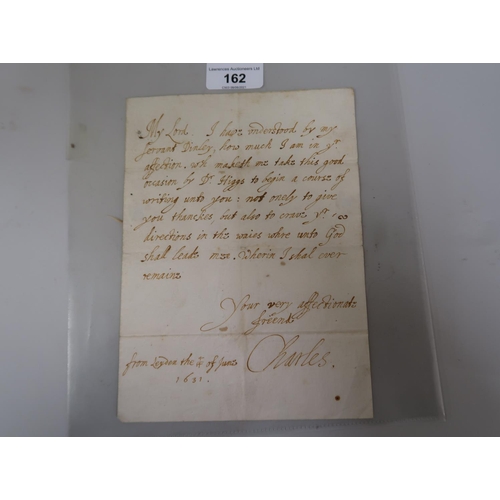 Lawrences Auctioneers Ltd
162
My Lord. I have understood by my
servant Dinley, how much I am in yr
affection. wch maketh me take this good
occasion by Dr. Higgs to begin a course of
writing unto you: not onely to give
you thanckes, but also to crave yr
directions in the waies whre unto God
shall leade mee. Wherin I shal ever
remaine
Your very affectionate
freind
Charles.
from Leyden the of June
1621.